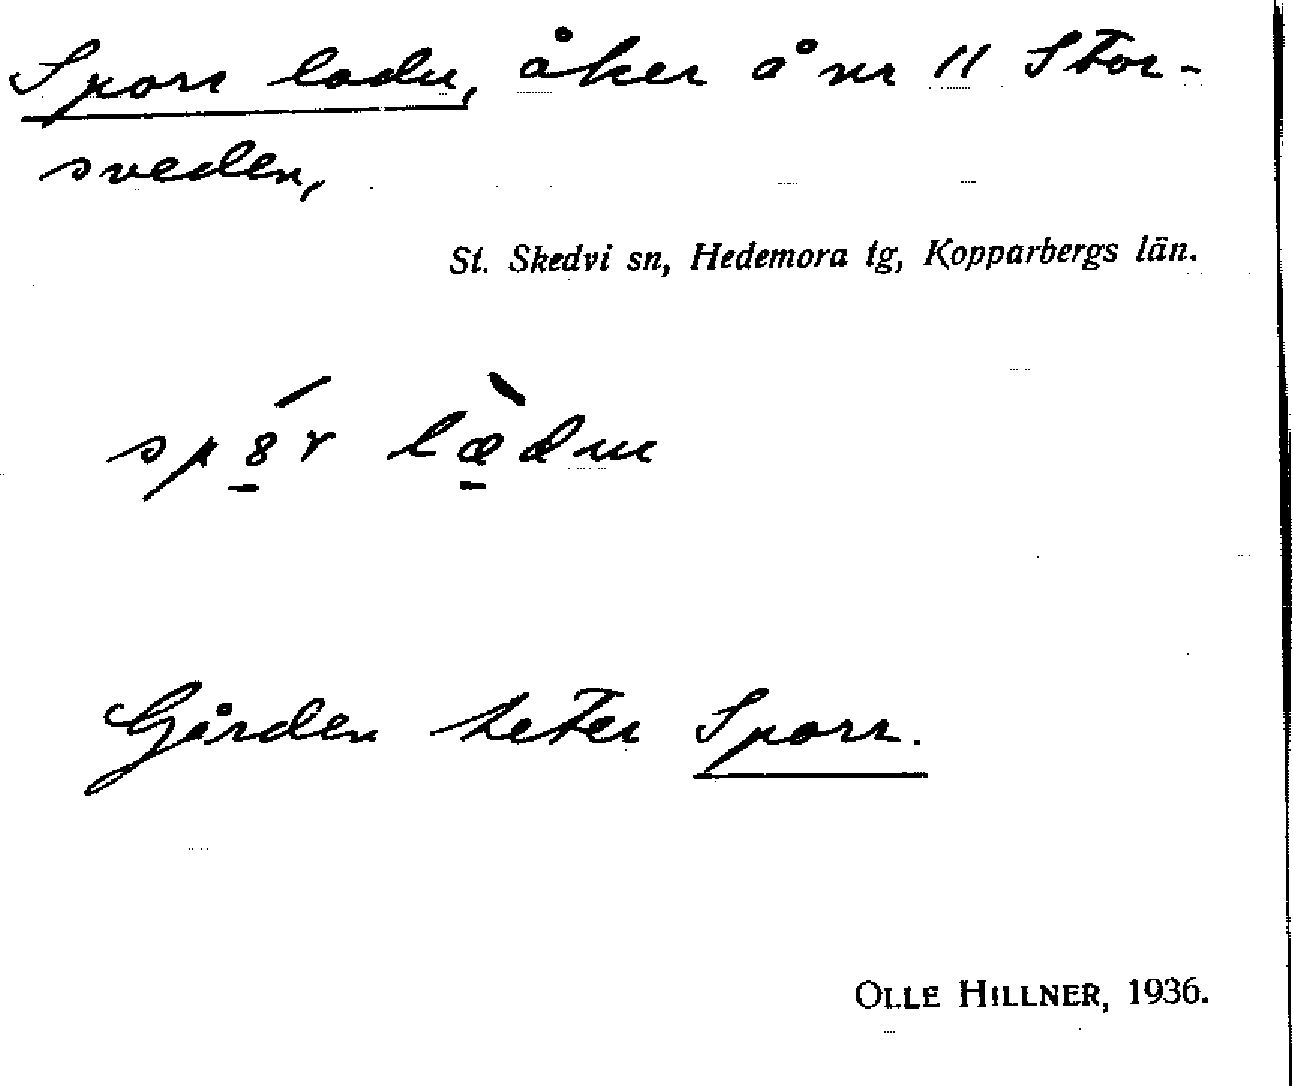 Sporr ladu, åker å nr 11 Stor-
sveden,
St. Skedvi sn, Hedemora tg, Kopparbergs län.
Gården heter Sporr.
OLLE HILLNER, 1936.